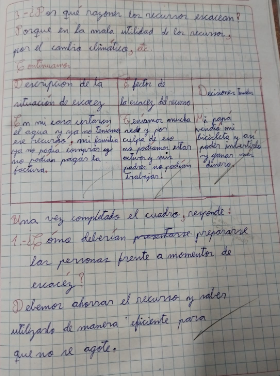 3-¿Por qué razones los recursos escasean?
Porque en la mala utilidad de los recursos,
por el cambio climático, etc
Descripción de la
situación de escasez
Efectos de
la escasez del recurso
Decisiones
En mi casa cortaron
el agua y ya no tenemos
ese recurso, mi familia
ya no podía
no podían pagar la
factura.
mucha
sed y por
culpa de eso
no podíamos estar
activos y mis
padres no podían
trabajar!
Mi papá
vendió mi
bicicleta y así
poder
y ganar más
dinero.
Una vez completado el cuadro, responde:
1-¿Cómo deberían prepararse
las personas frente a momentos de
escacéz?
Debemos ahorrar el recurso y saber
utilizarlo de manera eficiente para
que no se agote.